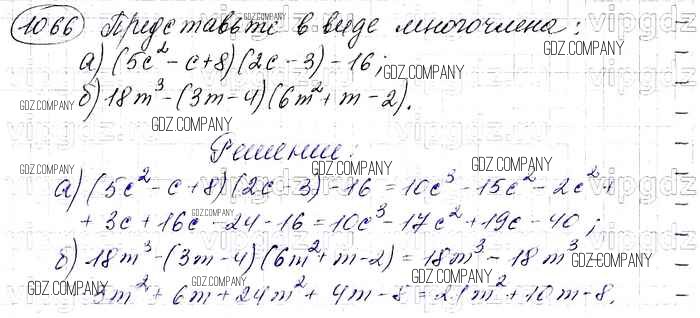 1066 Представьте в виде многочлена:
а) (5c² - c + 8)(2c - 3) - 16;
GDZ.COMPANY
б) 18m³ - (3m - 4)(6m² + m - 2).
GDZ.COMPANY
Решение:
а) (5c² - c + 8)(2c - 3) - 16 = 10c³ - 15c² - 2c² +
+ 3c + 16c - 24 - 16 = 10c³ - 17c² + 19c - 40;
б) 18m³ - (3m - 4)(6m² + m - 2) = 18m³ - 18m³ -
- 3m² + 6m + 24m² + 4m - 8 = 21m² + 10m - 8.
GDZ.COMPANY